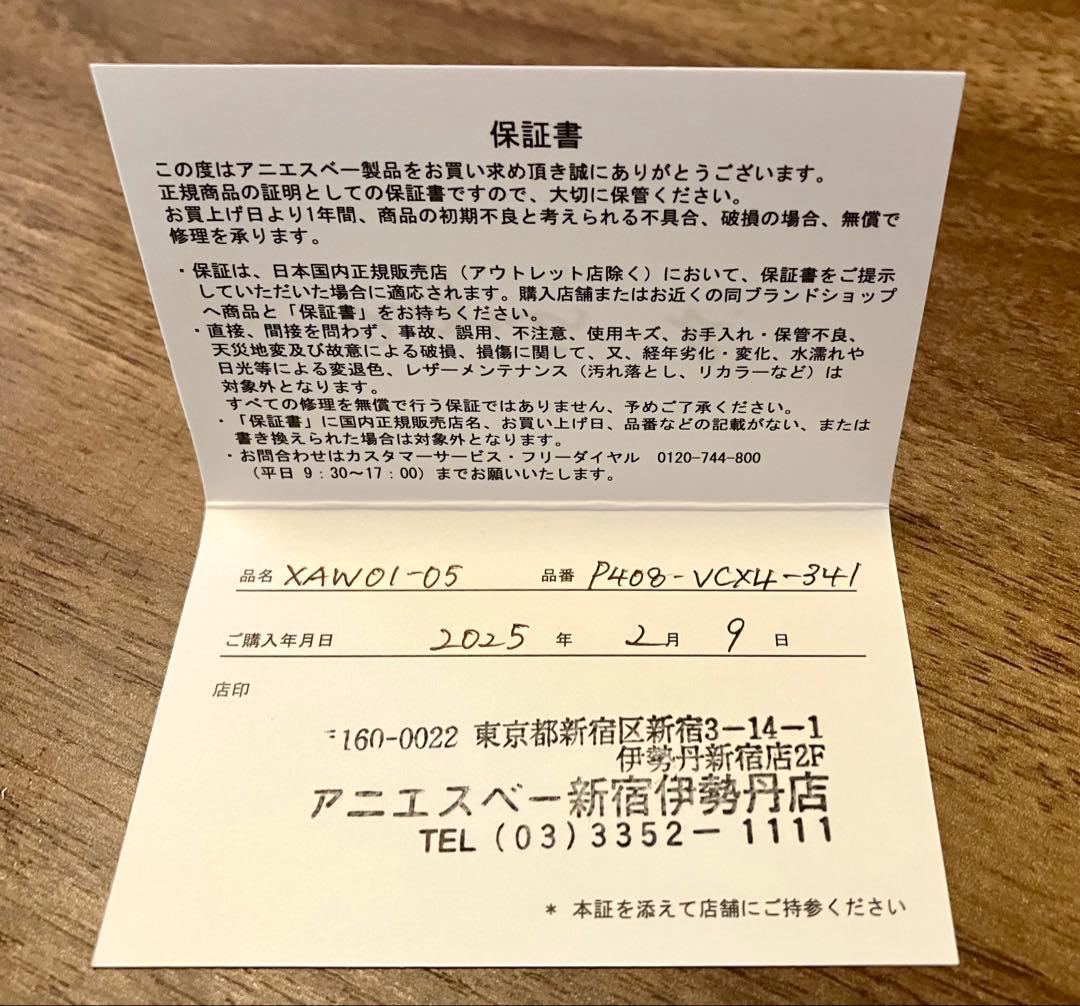 保証書
この度はアニエスベー製品をお買い求め頂き誠にありがとうございます。
正規商品の証明としての保証書ですので、大切に保管ください。
お買上げ日より1年間、商品の初期不良と考えられる不具合、破損の場合、無償で
修理を承ります。
・保証は、日本国内正規販売店（アウトレット店除く）において、保証書をご提示
していただいた場合に適応されます。購入店舗またはお近くの同ブランドショップ
へ商品と「保証書」をお持ちください。
・直接、間接を問わず、事故、誤用、不注意、使用キズ、お手入れ・保管不良、
天災地変及び故意による破損、損傷に関して、又、経年劣化・変化、水濡れや
日光等による変退色、レザーメンテナンス（汚れ落とし、リカラーなど）は
対象外となります。
すべての修理を無償で行う保証ではありません、予めご了承ください。
・「保証書」に国内正規販売店名、お買い上げ日、品番などの記載がない、または
書き換えられた場合は対象外となります。
・お問合わせはカスタマーサービス・フリーダイヤル 0120-744-800
（平日 9：30〜17：00）までお願いいたします。
品名 XAW01-05 品番 P408-VCX4-341
ご購入年月日 2025 年 2月 9 日
店印
〒160-0022 東京都新宿区新宿3-14-1
伊勢丹新宿店2F
アニエスベー新宿伊勢丹店
TEL (03) 3352-1111
* 本証を添えて店舗にご持参ください